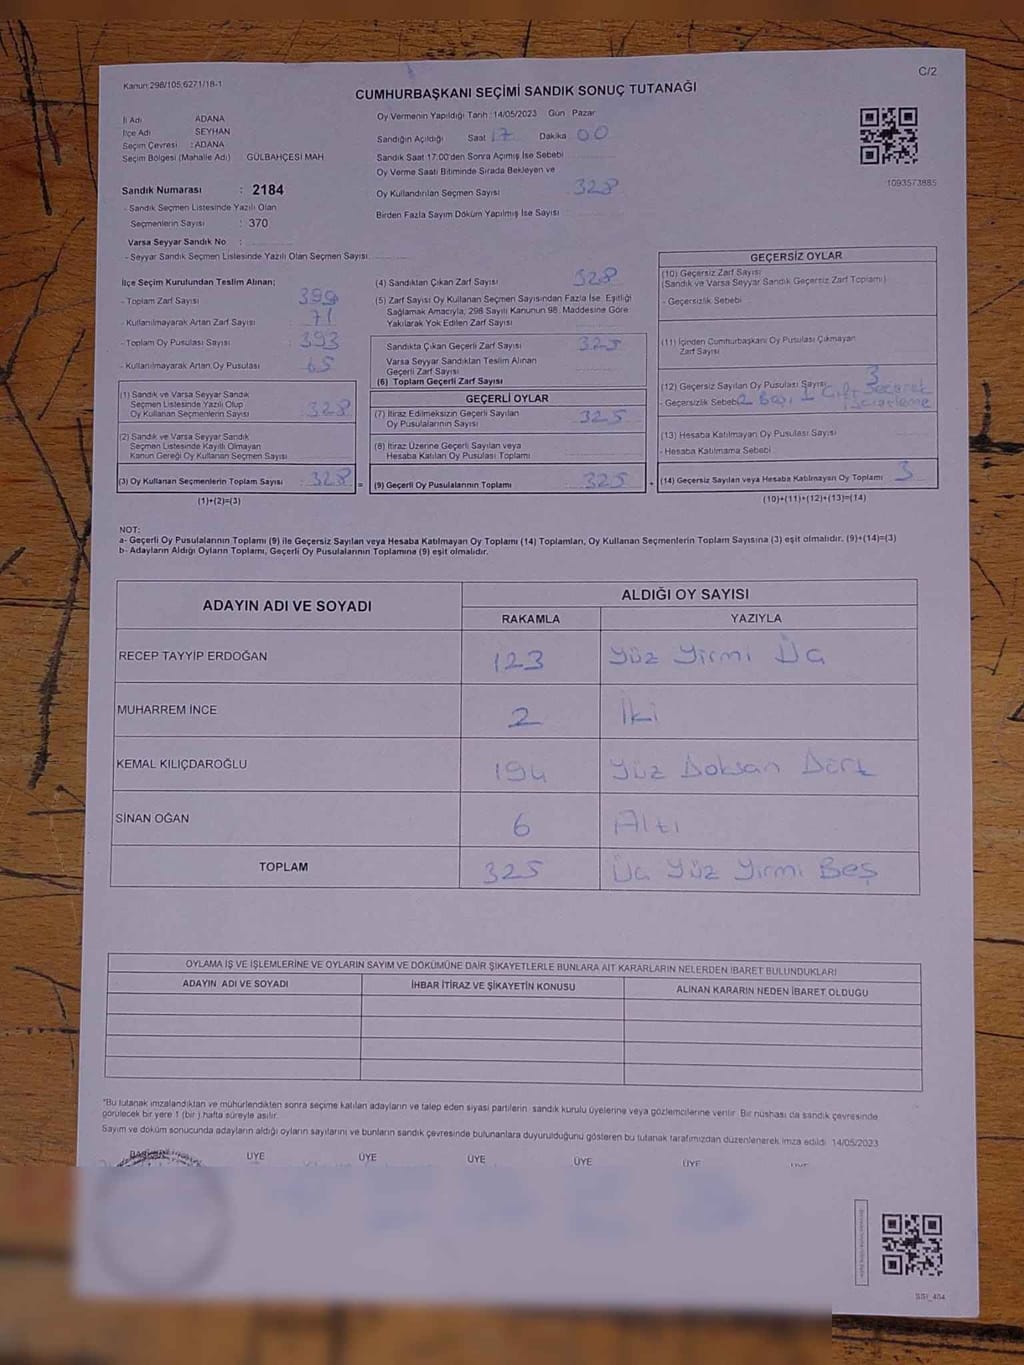 Kanun:298/105,6271/18-1
C/2
CUMHURBAŞKANI SEÇİMİ SANDIK SONUÇ TUTANAĞI
İl Adı ADANA
İlçe Adı SEYHAN
Seçim Çevresi : ADANA
Seçim Bölgesi (Mahalle Adı) GÜLBAHÇESİ MAH
Sandık Numarası : 2184
- Sandık Seçmen Listesinde Yazılı Olan
Seçmenlerin Sayısı : 370
Varsa Seyyar Sandık No :
- Seyyar Sandık Seçmen Listesinde Yazılı Olan Seçmen Sayısı
Oy Vermenin Yapıldığı Tarih :14/05/2023 Gün : Pazar
Sandığın Açıldığı Saat 17 Dakika 00
Sandık Saat 17.00'den Sonra Açımış İse Sebebi
Oy Verme Saati Bitiminde Sırada Bekleyen ve
Oy Kullandırılan Seçmen Sayısı 328
Birden Fazla Sayım Döküm Yapılmış İse Sayısı
1093573885
İlçe Seçim Kurulundan Teslim Alınan;
- Toplam Zarf Sayısı : 399
- Kullanılmayarak Artan Zarf Sayısı : 71
- Toplam Oy Pusulası Sayısı : 393
- Kullanılmayarak Artan Oy Pusulası : 65
(1) Sandık ve Varsa Seyyar Sandık
Seçmen Listesinde Yazılı Olup
Oy Kullanan Seçmenlerin Sayısı : 328
(2) Sandık ve Varsa Seyyar Sandık
Seçmen Listesinde Kayıtlı Olmayan
Kanun Gereği Oy Kullanan Seçmen Sayısı :
(3) Oy Kullanan Seçmenlerin Toplam Sayısı : 328
(1)+(2)=(3)
(4) Sandıktan Çıkan Zarf Sayısı 328
(5) Zarf Sayısı Oy Kullanan Seçmen Sayısından Fazla İse, Eşitliği
Sağlamak Amacıyla, 298 Sayılı Kanunun 98. Maddesine Göre
Yakılarak Yok Edilen Zarf Sayısı
Sandıkta Çıkan Geçerli Zarf Sayısı 325
Varsa Seyyar Sandıktan Teslim Alınan
Geçerli Zarf Sayısı
(6) Toplam Geçerli Zarf Sayısı
GEÇERLİ OYLAR
(7) İtiraz Edilmeksizin Geçerli Sayılan
Oy Pusulalarının Sayısı : 325
(8) İtiraz Üzerine Geçerli Sayılan veya
Hesaba Katılan Oy Pusulası Toplamı
= (9) Geçerli Oy Pusulalarının Toplamı : 325 +
GEÇERSİZ OYLAR
(10) Geçersiz Zarf Sayısı
(Sandık ve Varsa Seyyar Sandık Geçersiz Zarf Toplamı)
- Geçersizlik Sebebi
(11) İçinden Cumhurbaşkanı Oy Pusulası Çıkmayan
Zarf Sayısı
(12) Geçersiz Sayılan Oy Pusulası Sayısı 3
- Geçersizlik Sebebi 2 Boş 1 Çift
(13) Hesaba Katılmayan Oy Pusulası Sayısı
- Hesaba Katılmama Sebebi
(14) Geçersiz Sayılan veya Hesaba Katılmayan Oy Toplamı 3
(10)+(11)+(12)+(13)=(14)
NOT:
a- Geçerli Oy Pusulalarının Toplamı (9) ile Geçersiz Sayılan veya Hesaba Katılmayan Oy Toplamı (14) Toplamları, Oy Kullanan Seçmenlerin Toplam Sayısına (3) eşit olmalıdır. (9)+(14)=(3)
b- Adayların Aldığı Oyların Toplamı, Geçerli Oy Pusulalarının Toplamına (9) eşit olmalıdır.
ADAYIN ADI VE SOYADI
ALDIĞI OY SAYISI
RAKAMLA YAZIYLA
RECEP TAYYİP ERDOĞAN 123 Yüz Yirmi Üç
MUHARREM İNCE 2 İki
KEMAL KILIÇDAROĞLU 194 Yüz Doksan Dört
SİNAN OĞAN 6 Altı
TOPLAM 325 Üç Yüz Yirmi Beş
OYLAMA İŞ VE İŞLEMLERİNE VE OYLARIN SAYIM VE DÖKÜMÜNE DAİR ŞİKAYETLERLE BUNLARA AİT KARARLARIN NELERDEN İBARET BULUNDUKLARI
ADAYIN ADI VE SOYADI İHBAR İTİRAZ VE ŞİKAYETİN KONUSU ALINAN KARARIN NEDEN İBARET OLDUĞU
*Bu tutanak imzalandıktan ve mühürlendikten sonra seçime katılan adayların ve talep eden siyasi partilerin sandık kurulu üyelerine veya gözlemcilerine verilir. Bir nüshası da sandık çevresinde
görülecek bir yere 1 (bir) hafta süreyle asılır.
Sayım ve döküm sonucunda adayların aldığı oyların sayılarını ve bunların sandık çevresinde bulunanlara duyurulduğunu gösteren bu tutanak tarafımızdan düzenlenerek imza edildi. 14/05/2023
BAŞKAN ÜYE ÜYE ÜYE ÜYE ÜYE ÜYE